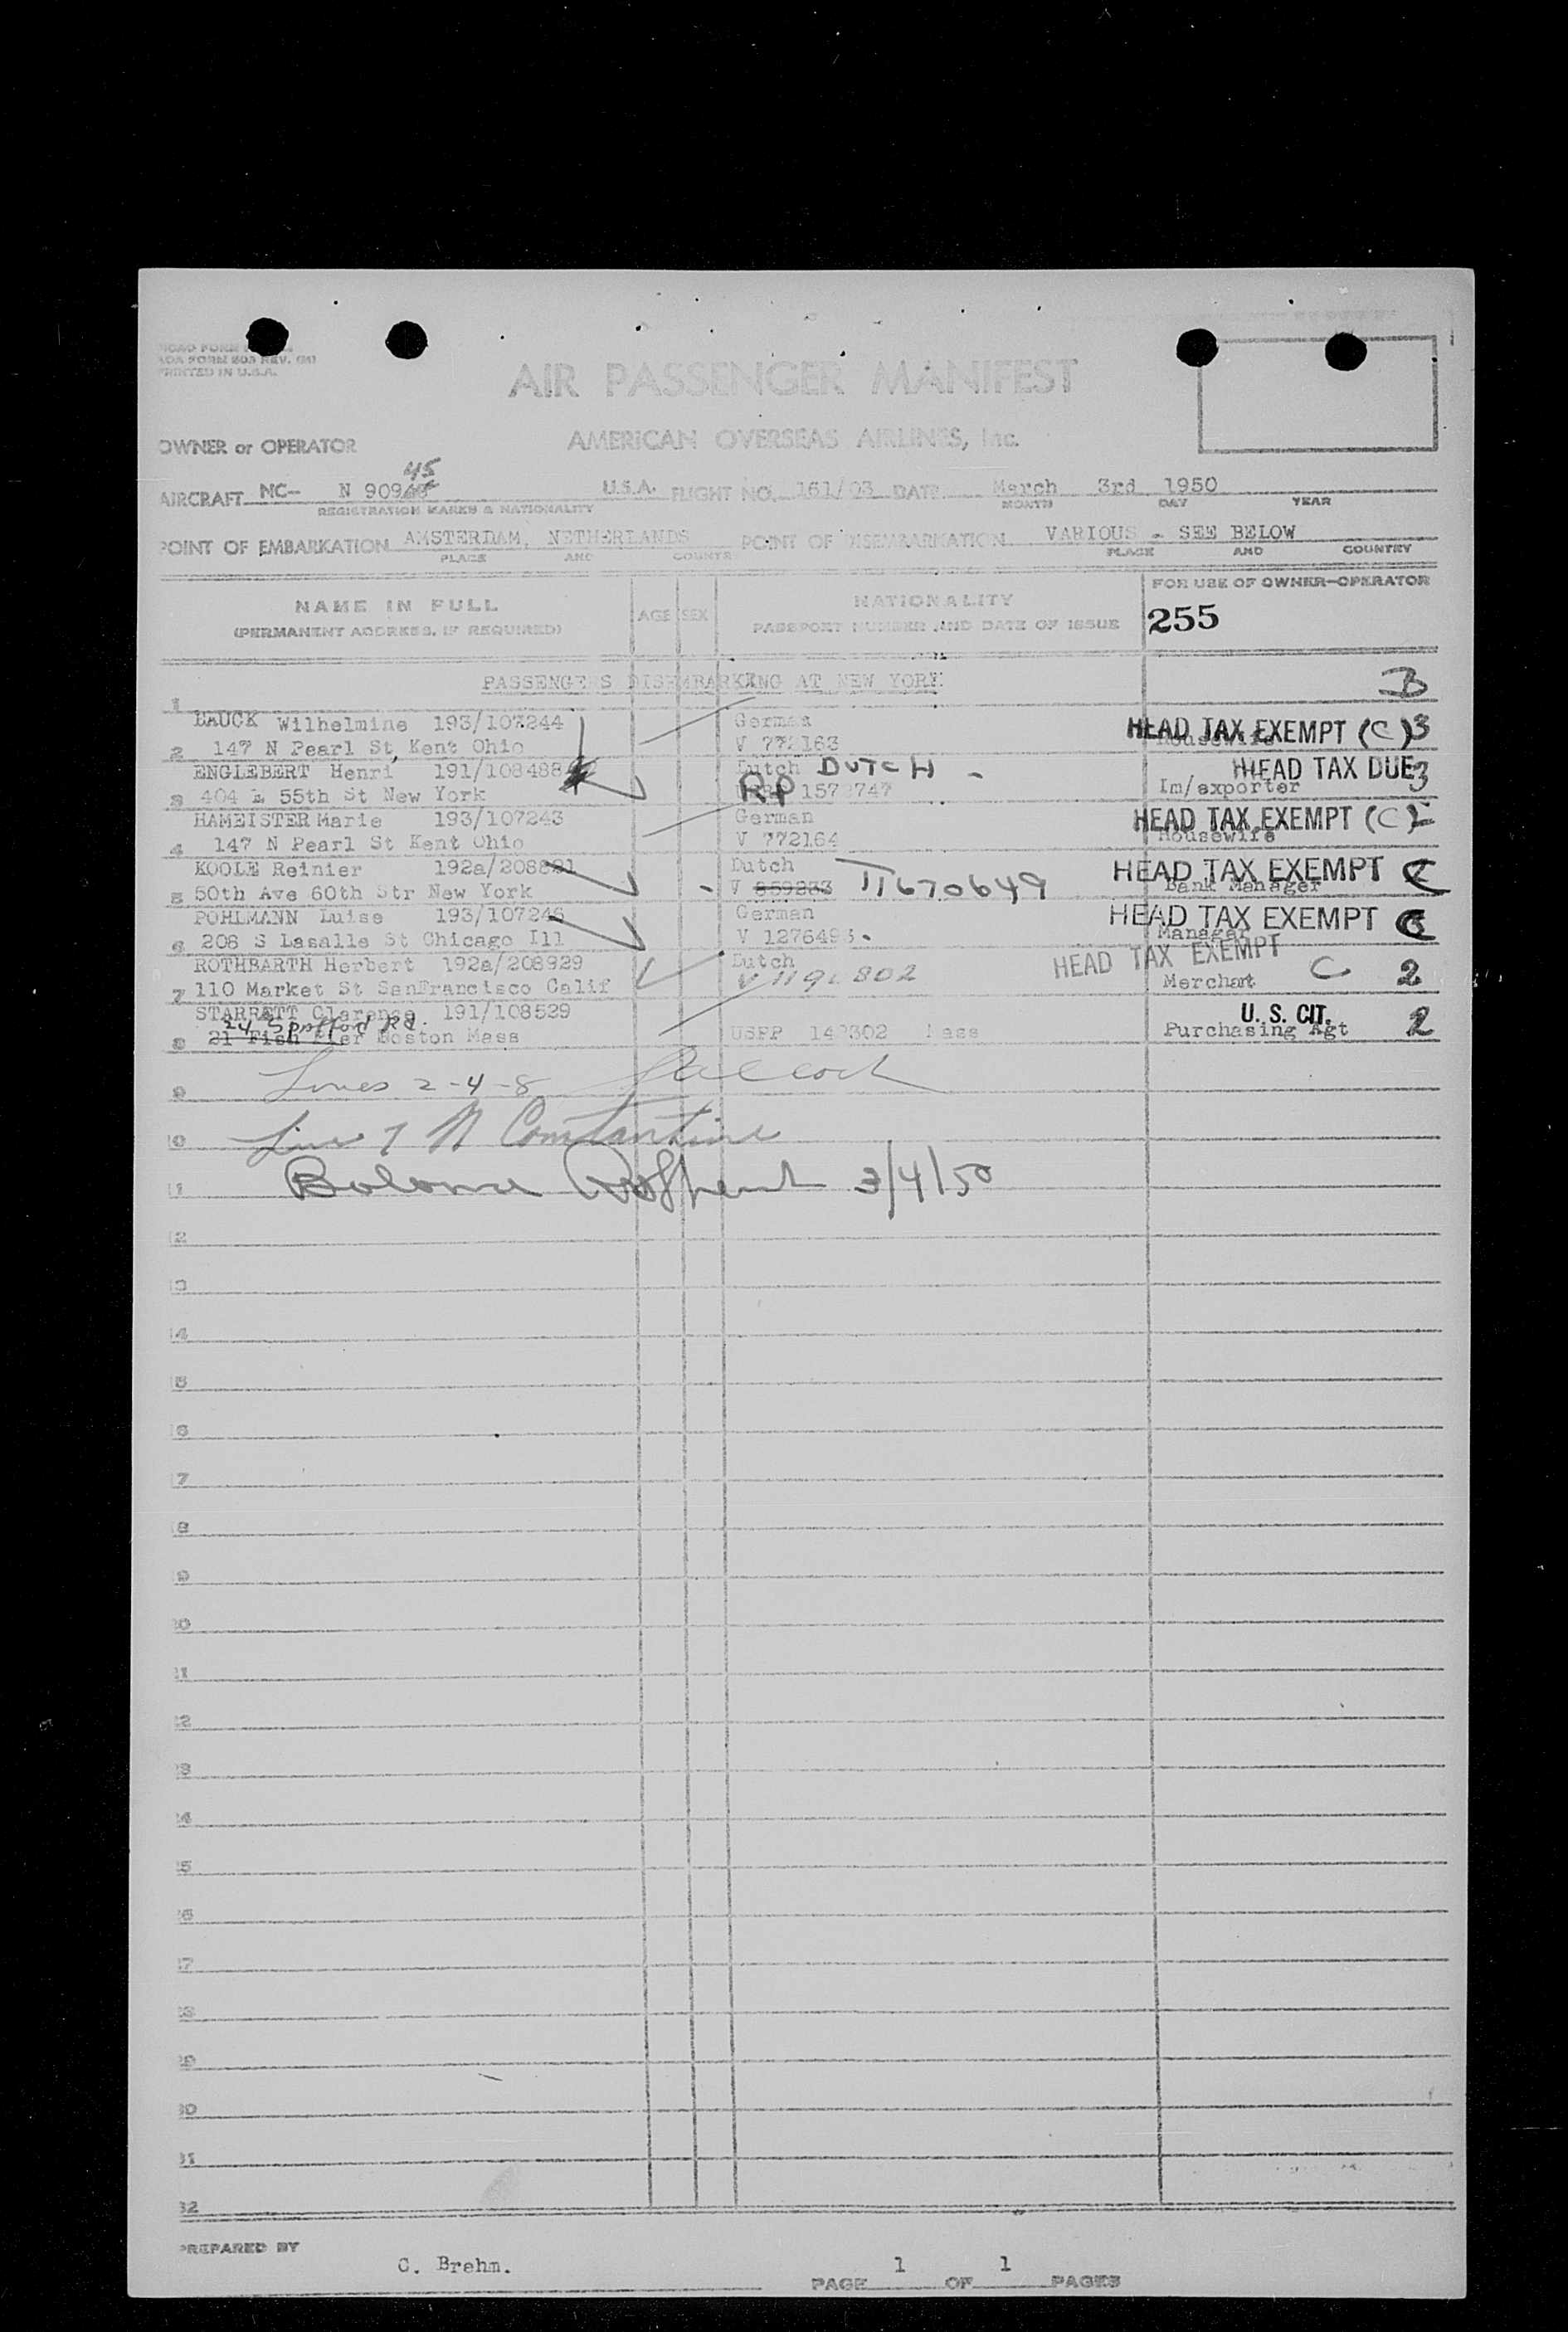 AOA FORM 803 REV.
PRINTED IN U.S.A.
AIR PASSENGER MANIFEST
OWNER or OPERATOR AMERICAN OVERSEAS AIRLINES, Inc.
45
AIRCRAFT NC- N 909 U.S.A. FLIGHT NO. 161/03 DATE March 3rd 1950
REGISTRATION MARKS & NATIONALITY MONTH DAY YEAR
POINT OF EMBARKATION AMSTERDAM, NETHERLANDS POINT OF DISEMBARKATION VARIOUS - SEE BELOW
PLACE AND COUNTRY PLACE AND COUNTRY
NAME IN FULL AGE SEX NATIONALITY FOR USE OF OWNER-OPERATOR
(PERMANENT ADDRESS, IF REQUIRED) PASSPORT NUMBER AND DATE OF ISSUE 255
PASSENGERS DISEMBARKING AT NEW YORK B
1
BAUCK Wilhelmine 193/107244 German HEAD TAX EXEMPT (C) 3
2 147 N Pearl St, Kent Ohio V 772163 Housewife
ENGLEBERT Henri 191/108488 Dutch DUTCH - HEAD TAX DUE 3
3 404 E 55th St New York RP 157 747 Im/exporter
HAMEISTER Marie 193/107243 German HEAD TAX EXEMPT (C)
4 147 N Pearl St Kent Ohio V 772164 Housewife
KOOLE Reinier 192a/208821 Dutch HEAD TAX EXEMPT C
5 50th Ave 60th Str New York V 859233 11670649 Bank Manager
POHLMANN Luise 193/107246 German HEAD TAX EXEMPT C
6 208 S Lasalle St Chicago Ill V 1276493 Manager
ROTHBARTH Herbert 192a/208929 Dutch HEAD TAX EXEMPT C 2
7 110 Market St SanFrancisco Calif V 802 Merchant
STARRETT Clarence 191/108529 U.S. CIT. 2
24 Spofford Rd.
8 21 Fish Pier Boston Mass USPP 14 302 Purchasing Agt
9 Lines 2-4-8
10 Line 7 N Constantine
11 3/4/50
12
13
14
15
16
17
18
19
20
21
22
23
24
25
26
27
28
29
30
31
32
PREPARED BY C. Brehm.
PAGE 1 OF 1 PAGES